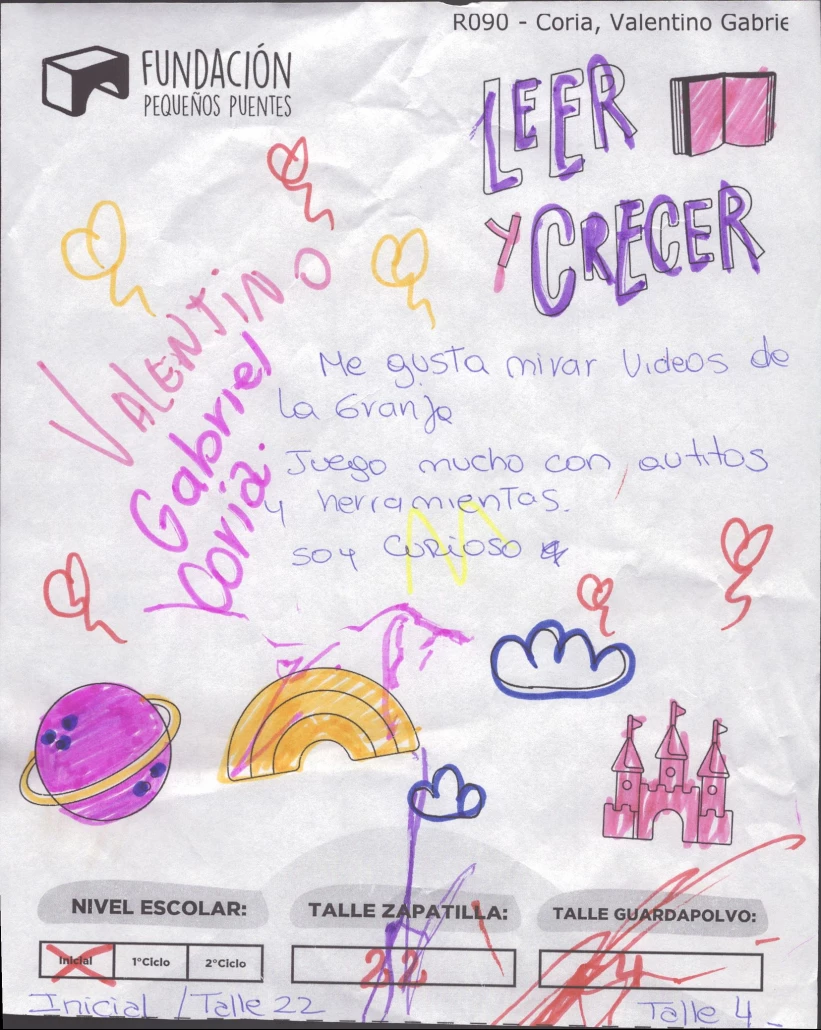 R090 - Coria, Valentino Gabrie
FUNDACIÓN
PEQUEÑOS PUENTES
LEER
Y CRECER
VALENTINO
Gabriel
Coria.
Me gusta mirar Videos de
La Granja
Juego mucho con autitos
y herramientas.
soy Curioso
NIVEL ESCOLAR:
TALLE ZAPATILLA:
TALLE GUARDAPOLVO:
Inicial 1°Ciclo 2°Ciclo
22
4
Inicial / Talle 22
Talle 4